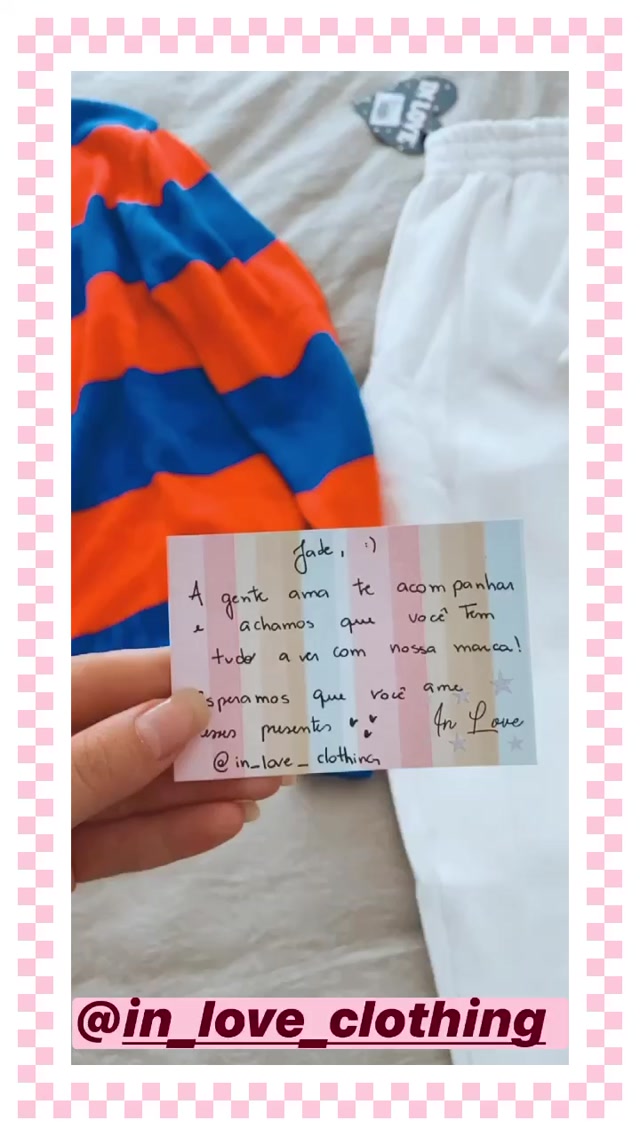 IN LOVE.
Jade, :)
A gente ama te acompanhar
e achamos que você Tem
tudo a ver com nossa marca!
Esperamos que você ame
esses presentes
In Love
@in_love_clothing
@in_love_clothing